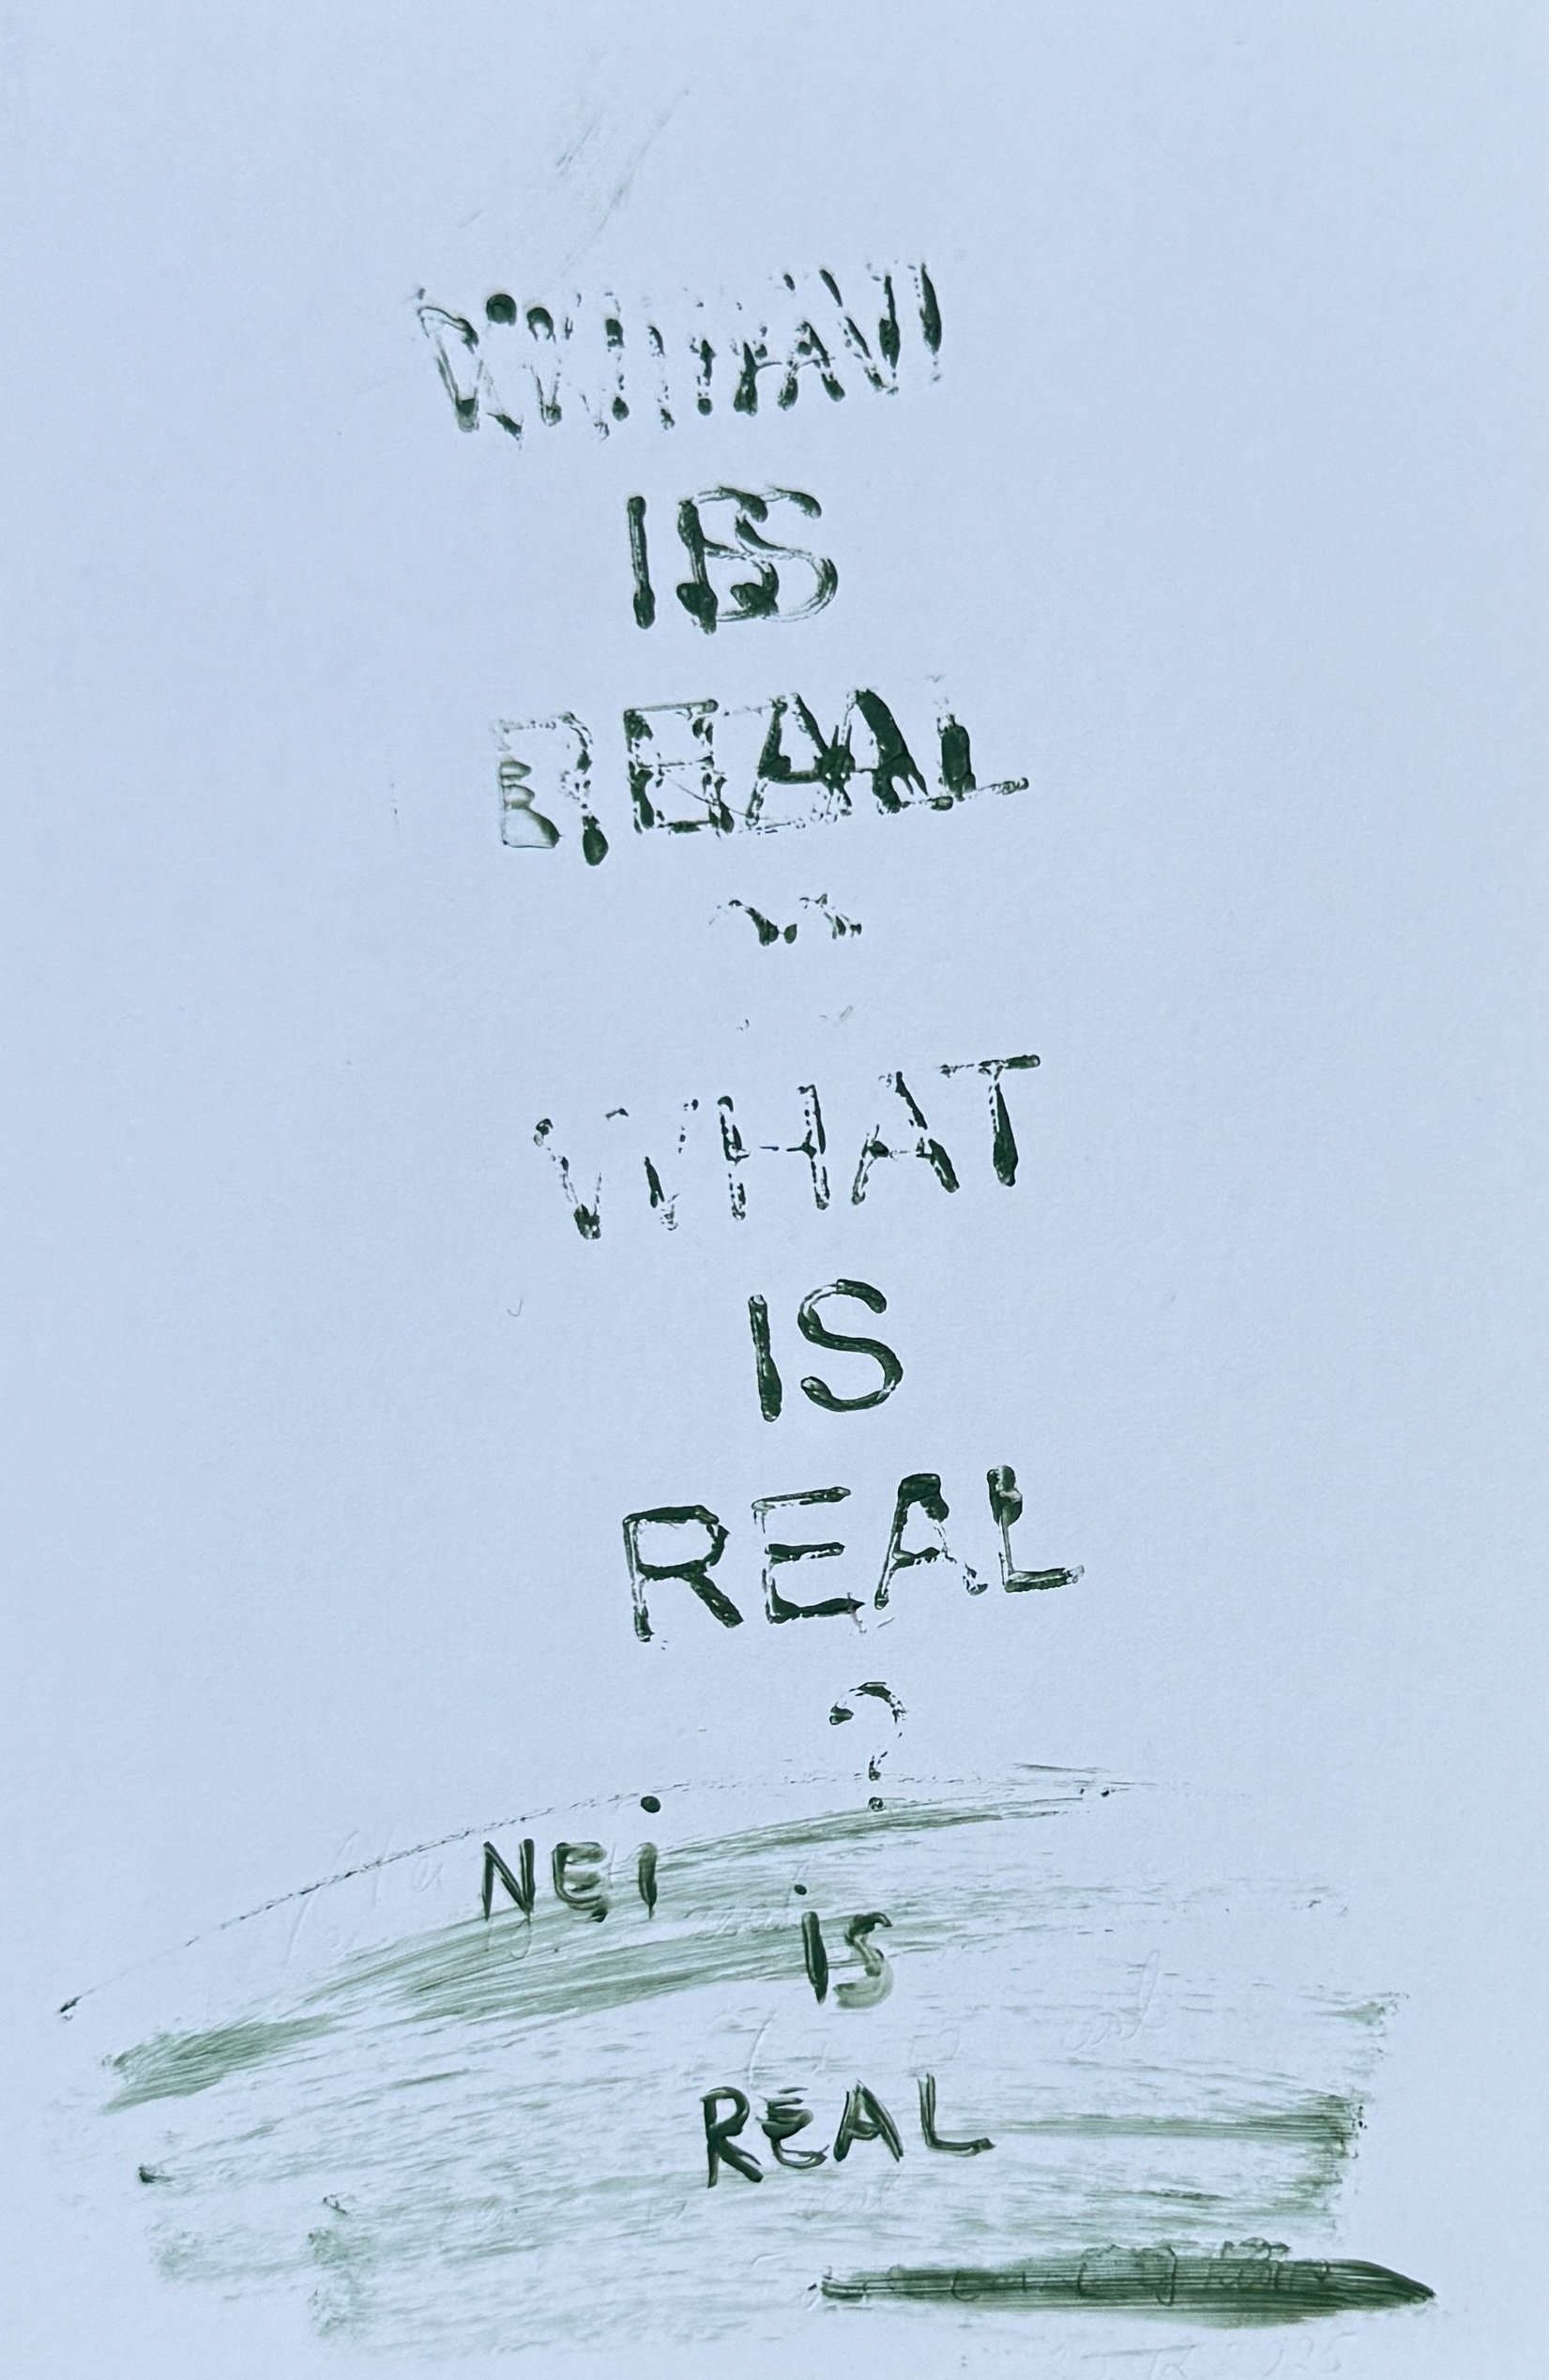 WHAT
IS
REAL
?
WHAT
IS
REAL
?
NEi
iS
REAL